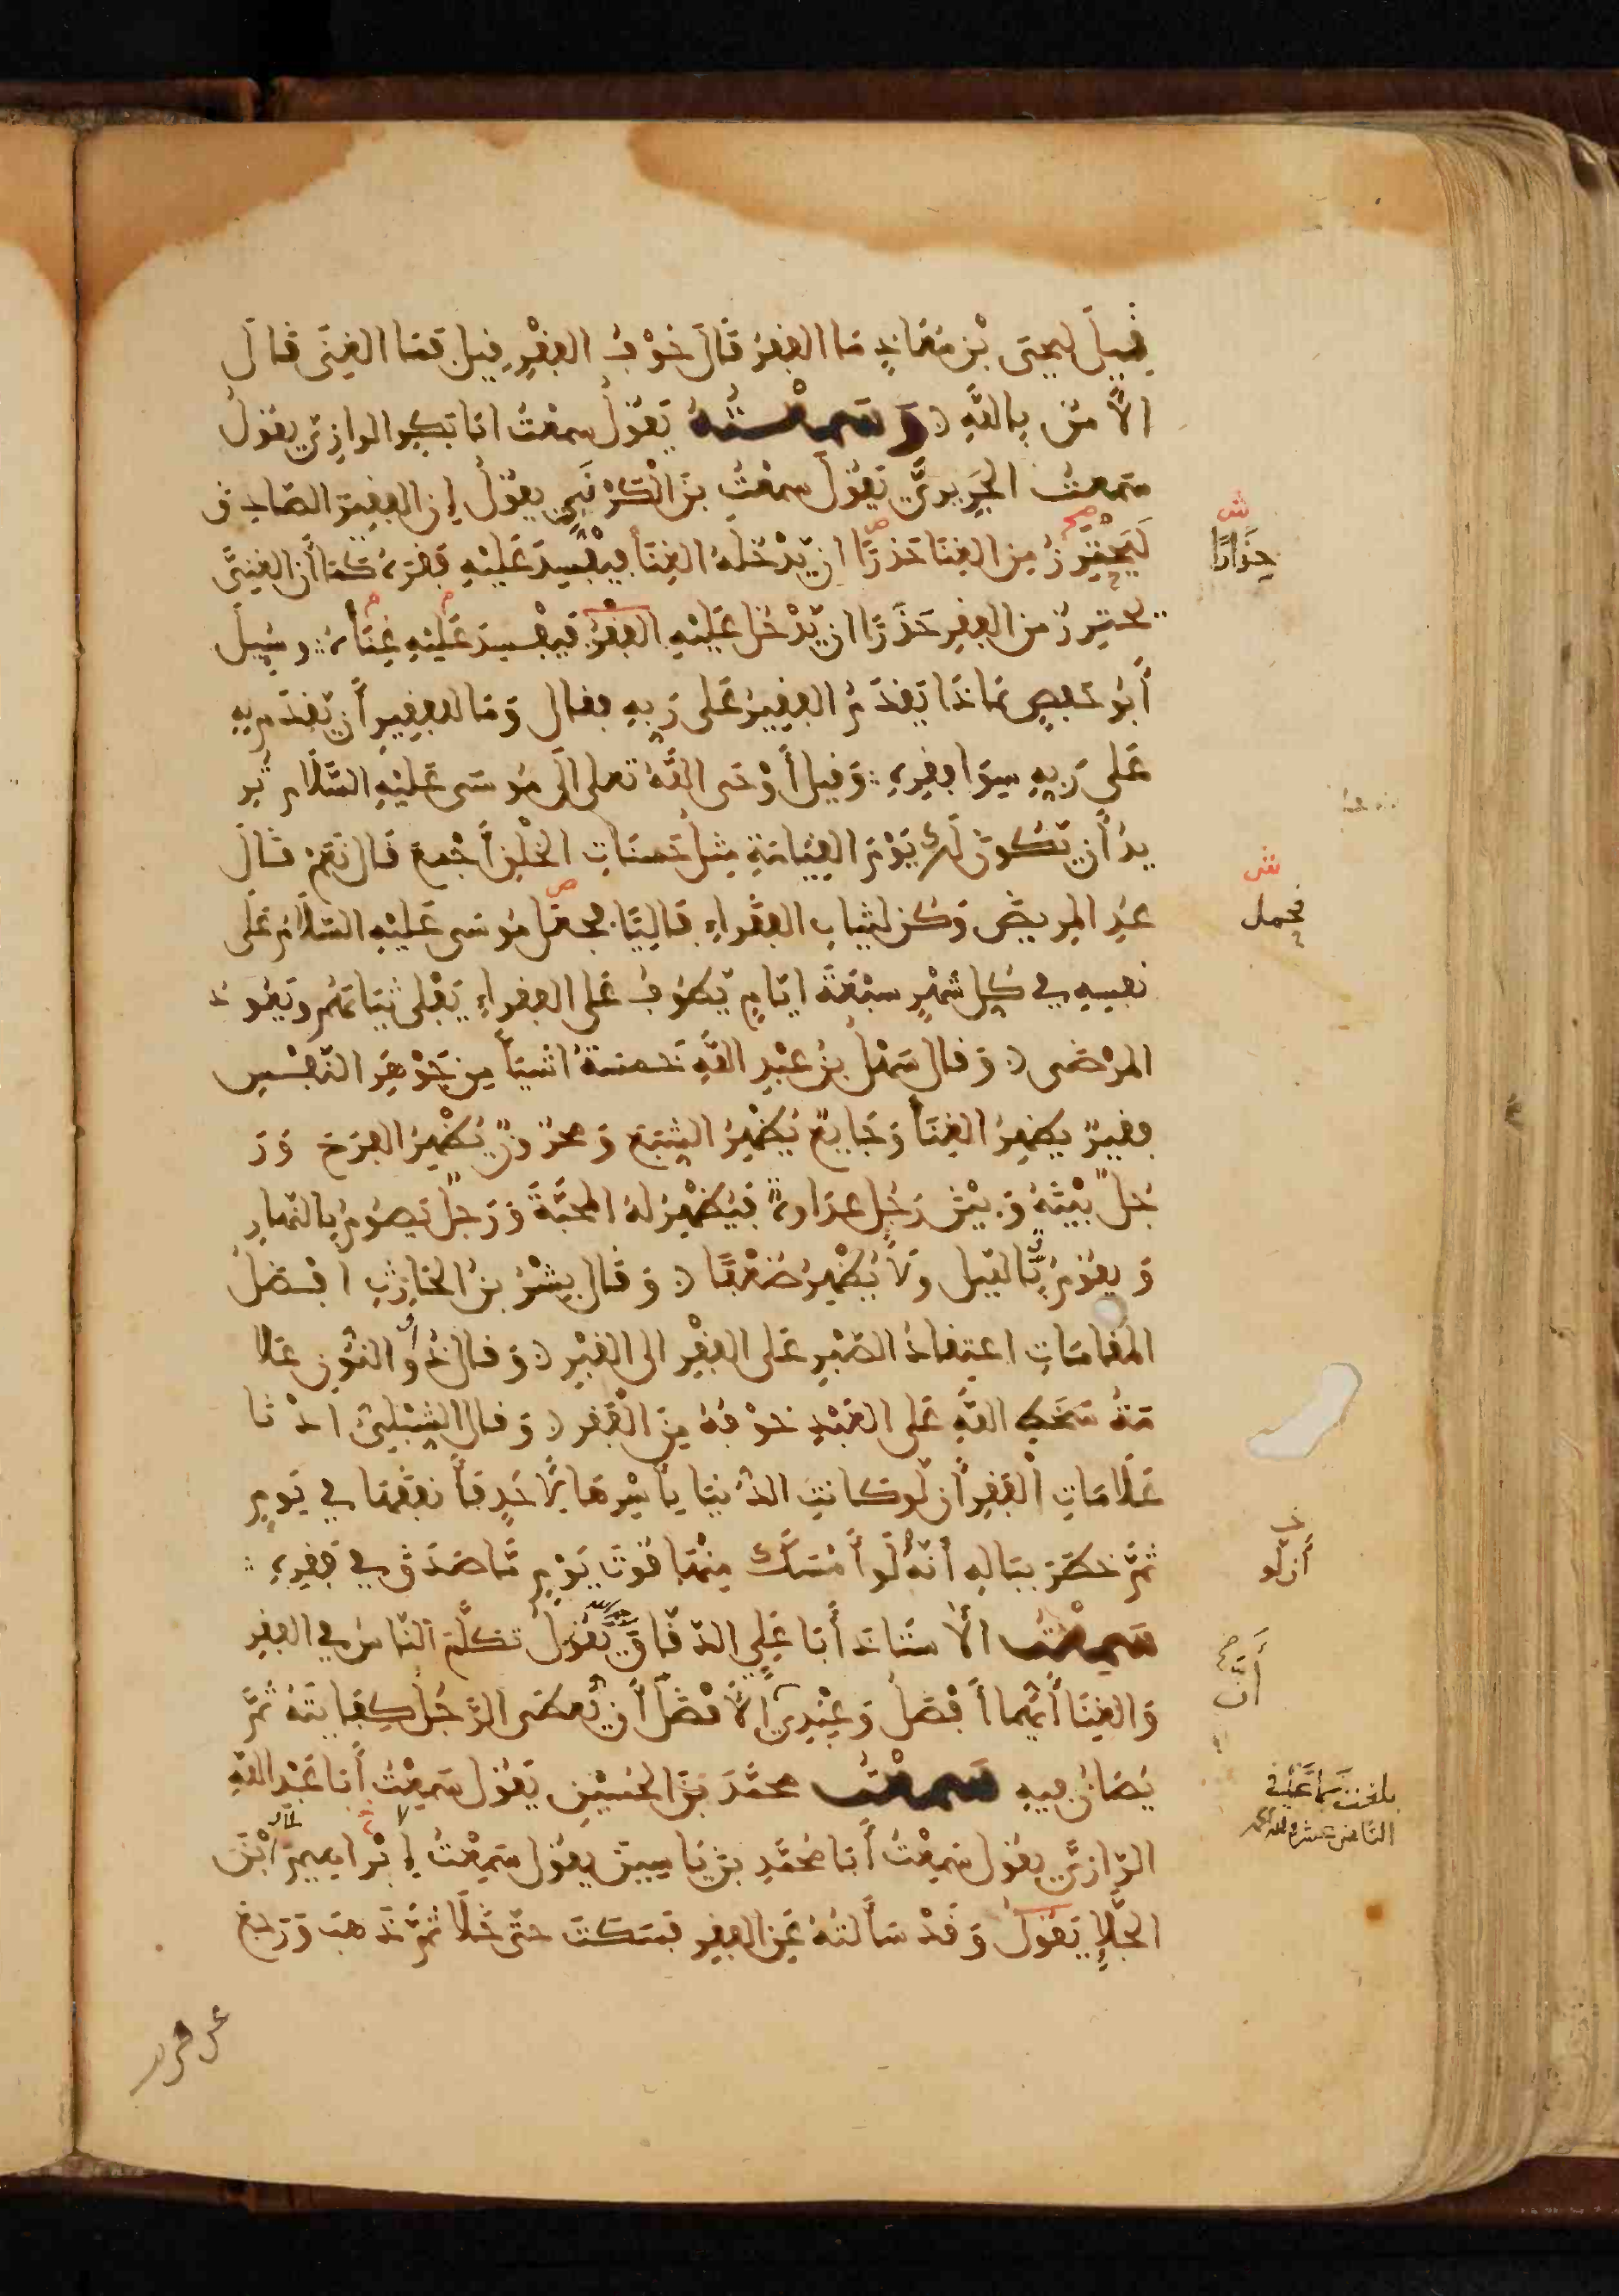 قِيلَ ليحيَى بْن مُعَاذٍ مَا الفقرُ قَالَ خَوْفُ الفقْرِ قيل فمَا الغِنَى قَالَ
الأمنُ بِاللَّهِ وَسَمِعْتُهُ يَقُولُ سمِعْتُ ابَا بَكرٍ الرازيّ يقولُ
سَمعتُ الجَريريَّ يَقُولُ سمعْتُ بنَ الْكَرْنَبِي يقولُ إن الفقيرَ الصّادق
لَيَحْتَرِزُ مِن الغِنَا حَذرًا ان يَدْخُلَهُ الغِنَا فيُفْسِدَ عَلَيْهِ فقرَهُ كَمَا أَن الغَنِيَّ
يحترِزُ من الفقرِ حَذَرًا ان يَدْخُلَ عَلَيْهِ الفقْرُ فيفسِدَ عَلَيْهِ غِنَاهُ وسُئِلَ
أَبُو حَفصٍ بمَاذَا يَقْدَمُ الفقِيرُ عَلى رَبهِ فقال وَمَا للفقِيرِ أَن يَقْدَم بِهِ
عَلى رَبهِ سِوَا فقرِهِ وَقيل أَوْحَى اللَّهُ تعلى الَى مُوسَى عَلَيْهِ السَّلَام تُر
يدُ أَن تَكُونَ لَكَ يَوْمَ القِيَامَةِ مِثلُ حَسَنَاتِ الخلْقِ أَجْمعَ قَال نَعَمْ قَالَ
عُدِ المرِيضَ وَكُن لثيابِ الفقراءِ فَاليًا فجعلَ مُوسَى عَلَيْهِ السّلَامُ عَلَى
نفسِهِ في كُل شهْرٍ سَبْعَةَ ايّامٍ يَطُوفُ عَلى الفقراءِ يَفْلى ثيَابَهُم وَيَعُودُ
المرْضَى وَقال سَهْلُ بنُ عَبْدِ اللَّهِ خَمسَةُ اشيَا مِن جَوْهَرِ النّفْسِ
فقيرٌ يظهِرُ الغِنَا وَجَايعٌ يُظهِرُ الشِبَعَ وَمحزُونٌ يُظْهِرُ الفرَحَ وَرَ
جُلٌ بَيْنَهُ وَبيْنَ رَجُل عدَاوةٌ فيُظْهِرُ لهُ المحَبَّةَ وَرَجلٌ يصُومُ بِالنّهارِ
وَيقُومُ بِاللّيل وَلَا يُظْهِرُ ضَعْفًا وَقَال بِشْرُ بنُ الحَارِثِ افضَلُ
المقامَاتِ اعتِقادُ الصّبْرِ عَلى الفقْرِ الى القبْرِ وَقال ذُو النُّونِ عَلا
مَةُ سَخَطِ اللَّهِ عَلى العَبْدِ خوْفهُ مِنَ الْفَقرِ وَقال الشِّبْلِيُّ ادْنَا
عَلَامَاتِ الْفَقرِ أَن لَو كانتِ الدُنيَا بِأَسْرِهَا لِأَحَدٍ فَأنفقَهَا في يَومٍ
ثُمَّ خطَرَ بِبَالِهِ أَنَّهُ لَو أَمْسَكَ مِنْهَا قُوتَ يَوْمٍ مَا صَدَقَ في فقرِهِ
سَمِعْتُ الأُستَاذَ أَبَا عَلِي الدّقّاقَ رحمه الله يَقُولُ تكَلَّمَ النّاسُ في الفقرِ
وَالغِنَا أَيُّهُمَا أَفْضَلُ وَعِنْدِي أَنَّ الأَفْضَلَ أَن يُعطَى الرَّجُلُ كِفَايَتَهُ ثُمَّ
يُصَانُ فيهِ سَمِعْتُ محمَّدَ بنَ الحسَيْنِ يَقُول سَمِعْتُ أَبَا عَبْدِ اللَّهِ
الرّازيَّ يقُول سَمِعْتُ أَبَا مُحمّدِ بنَ يَاسِينَ يقُول سَمِعْتُ إبْرَاهِيمَ ابْنَ
الجَلَّاءِ يَقُولُ وَقَدْ سَألتُهُ عَنِ الفقرِ فسَكَتَ حتّى خَلَا ثُمَّ ذَهبَ وَرَجعَ
ش
حِذَارًا
ش
فجعل
خ
أن لو
أنَّ
بلغت سماعا في
الثامن عشر ولله الحمد
عن قرب